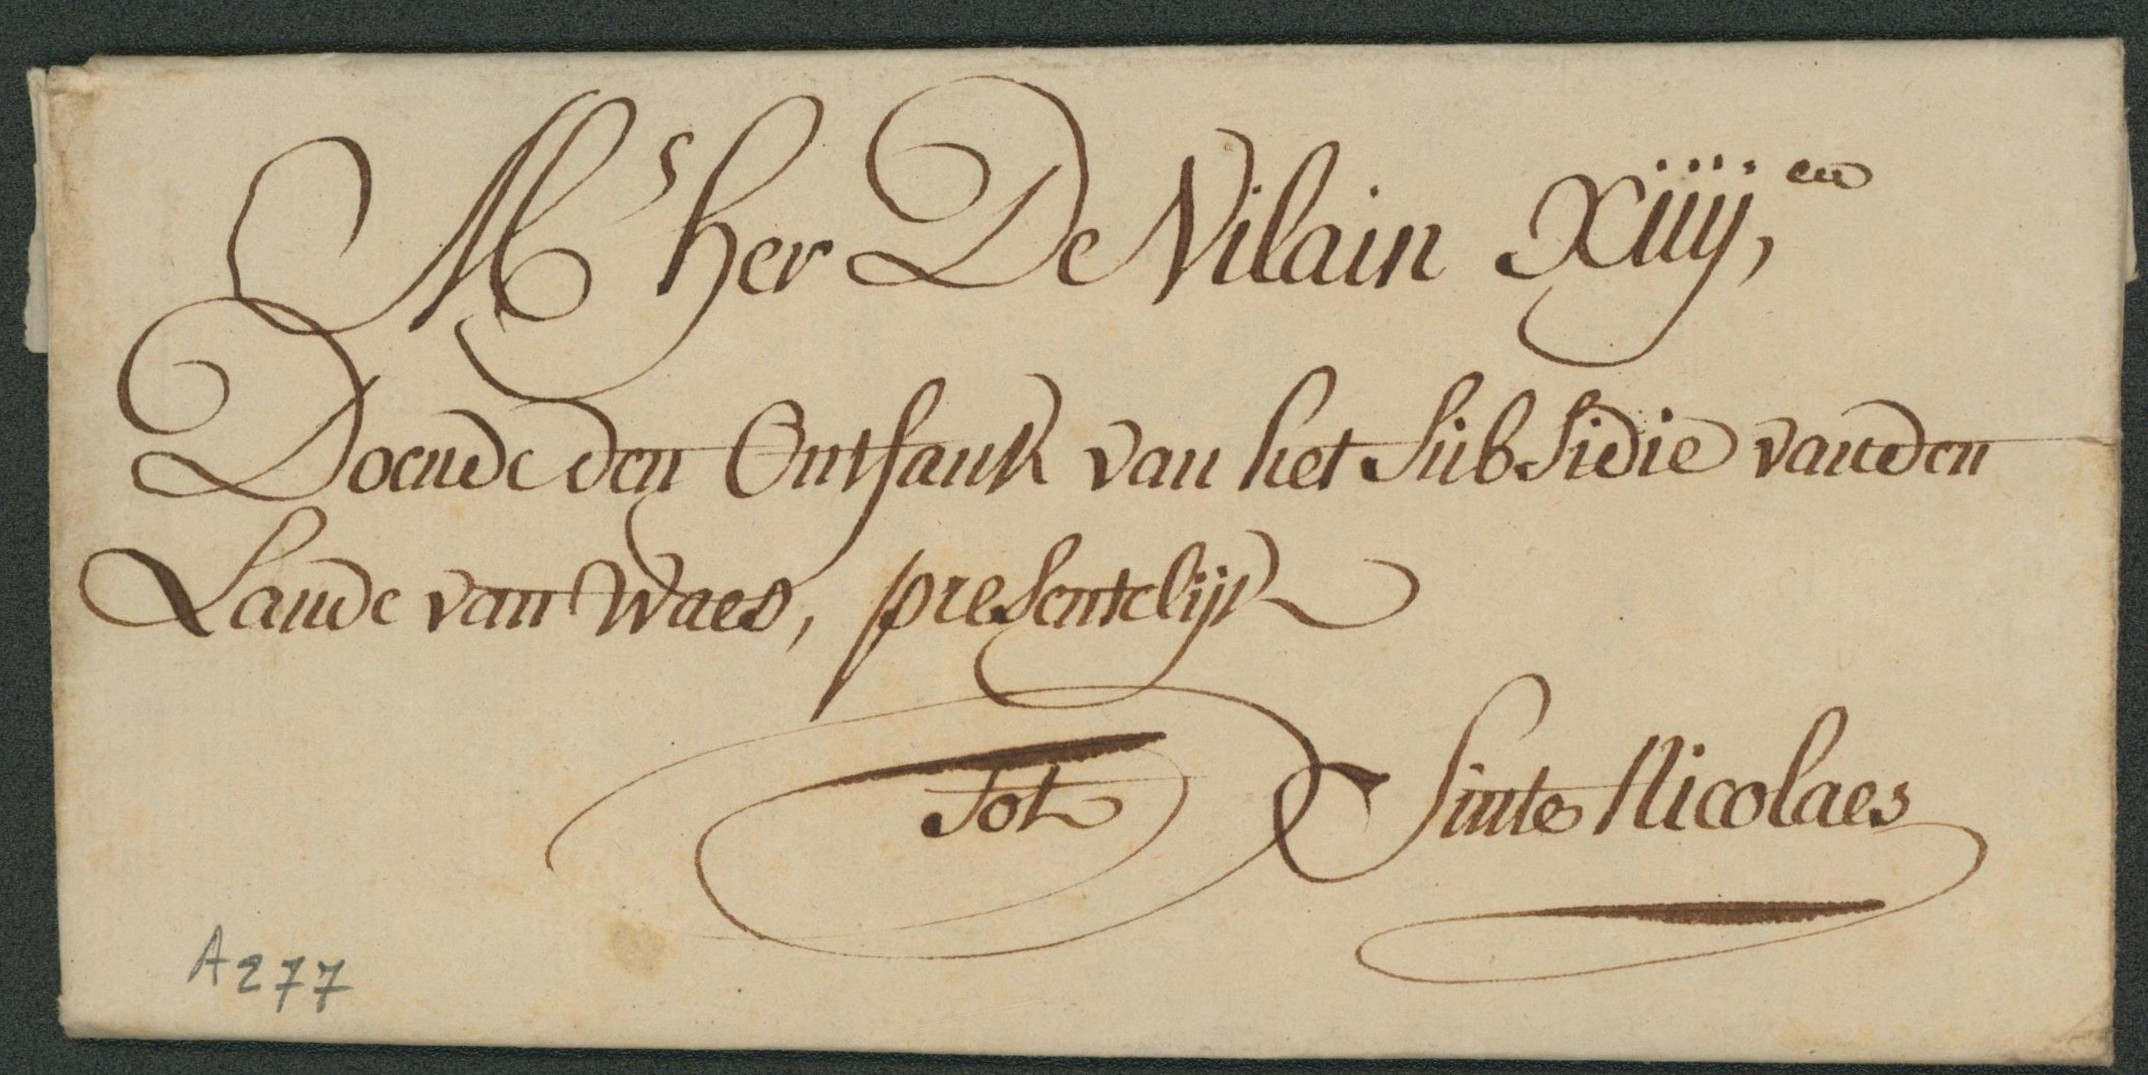 Ms her De Vilain Xiiij,en
Doende den Ontfank van het Subsidie vanden
Lande van Waes, presentelijk
Tot Sinte Nicolaes
A277